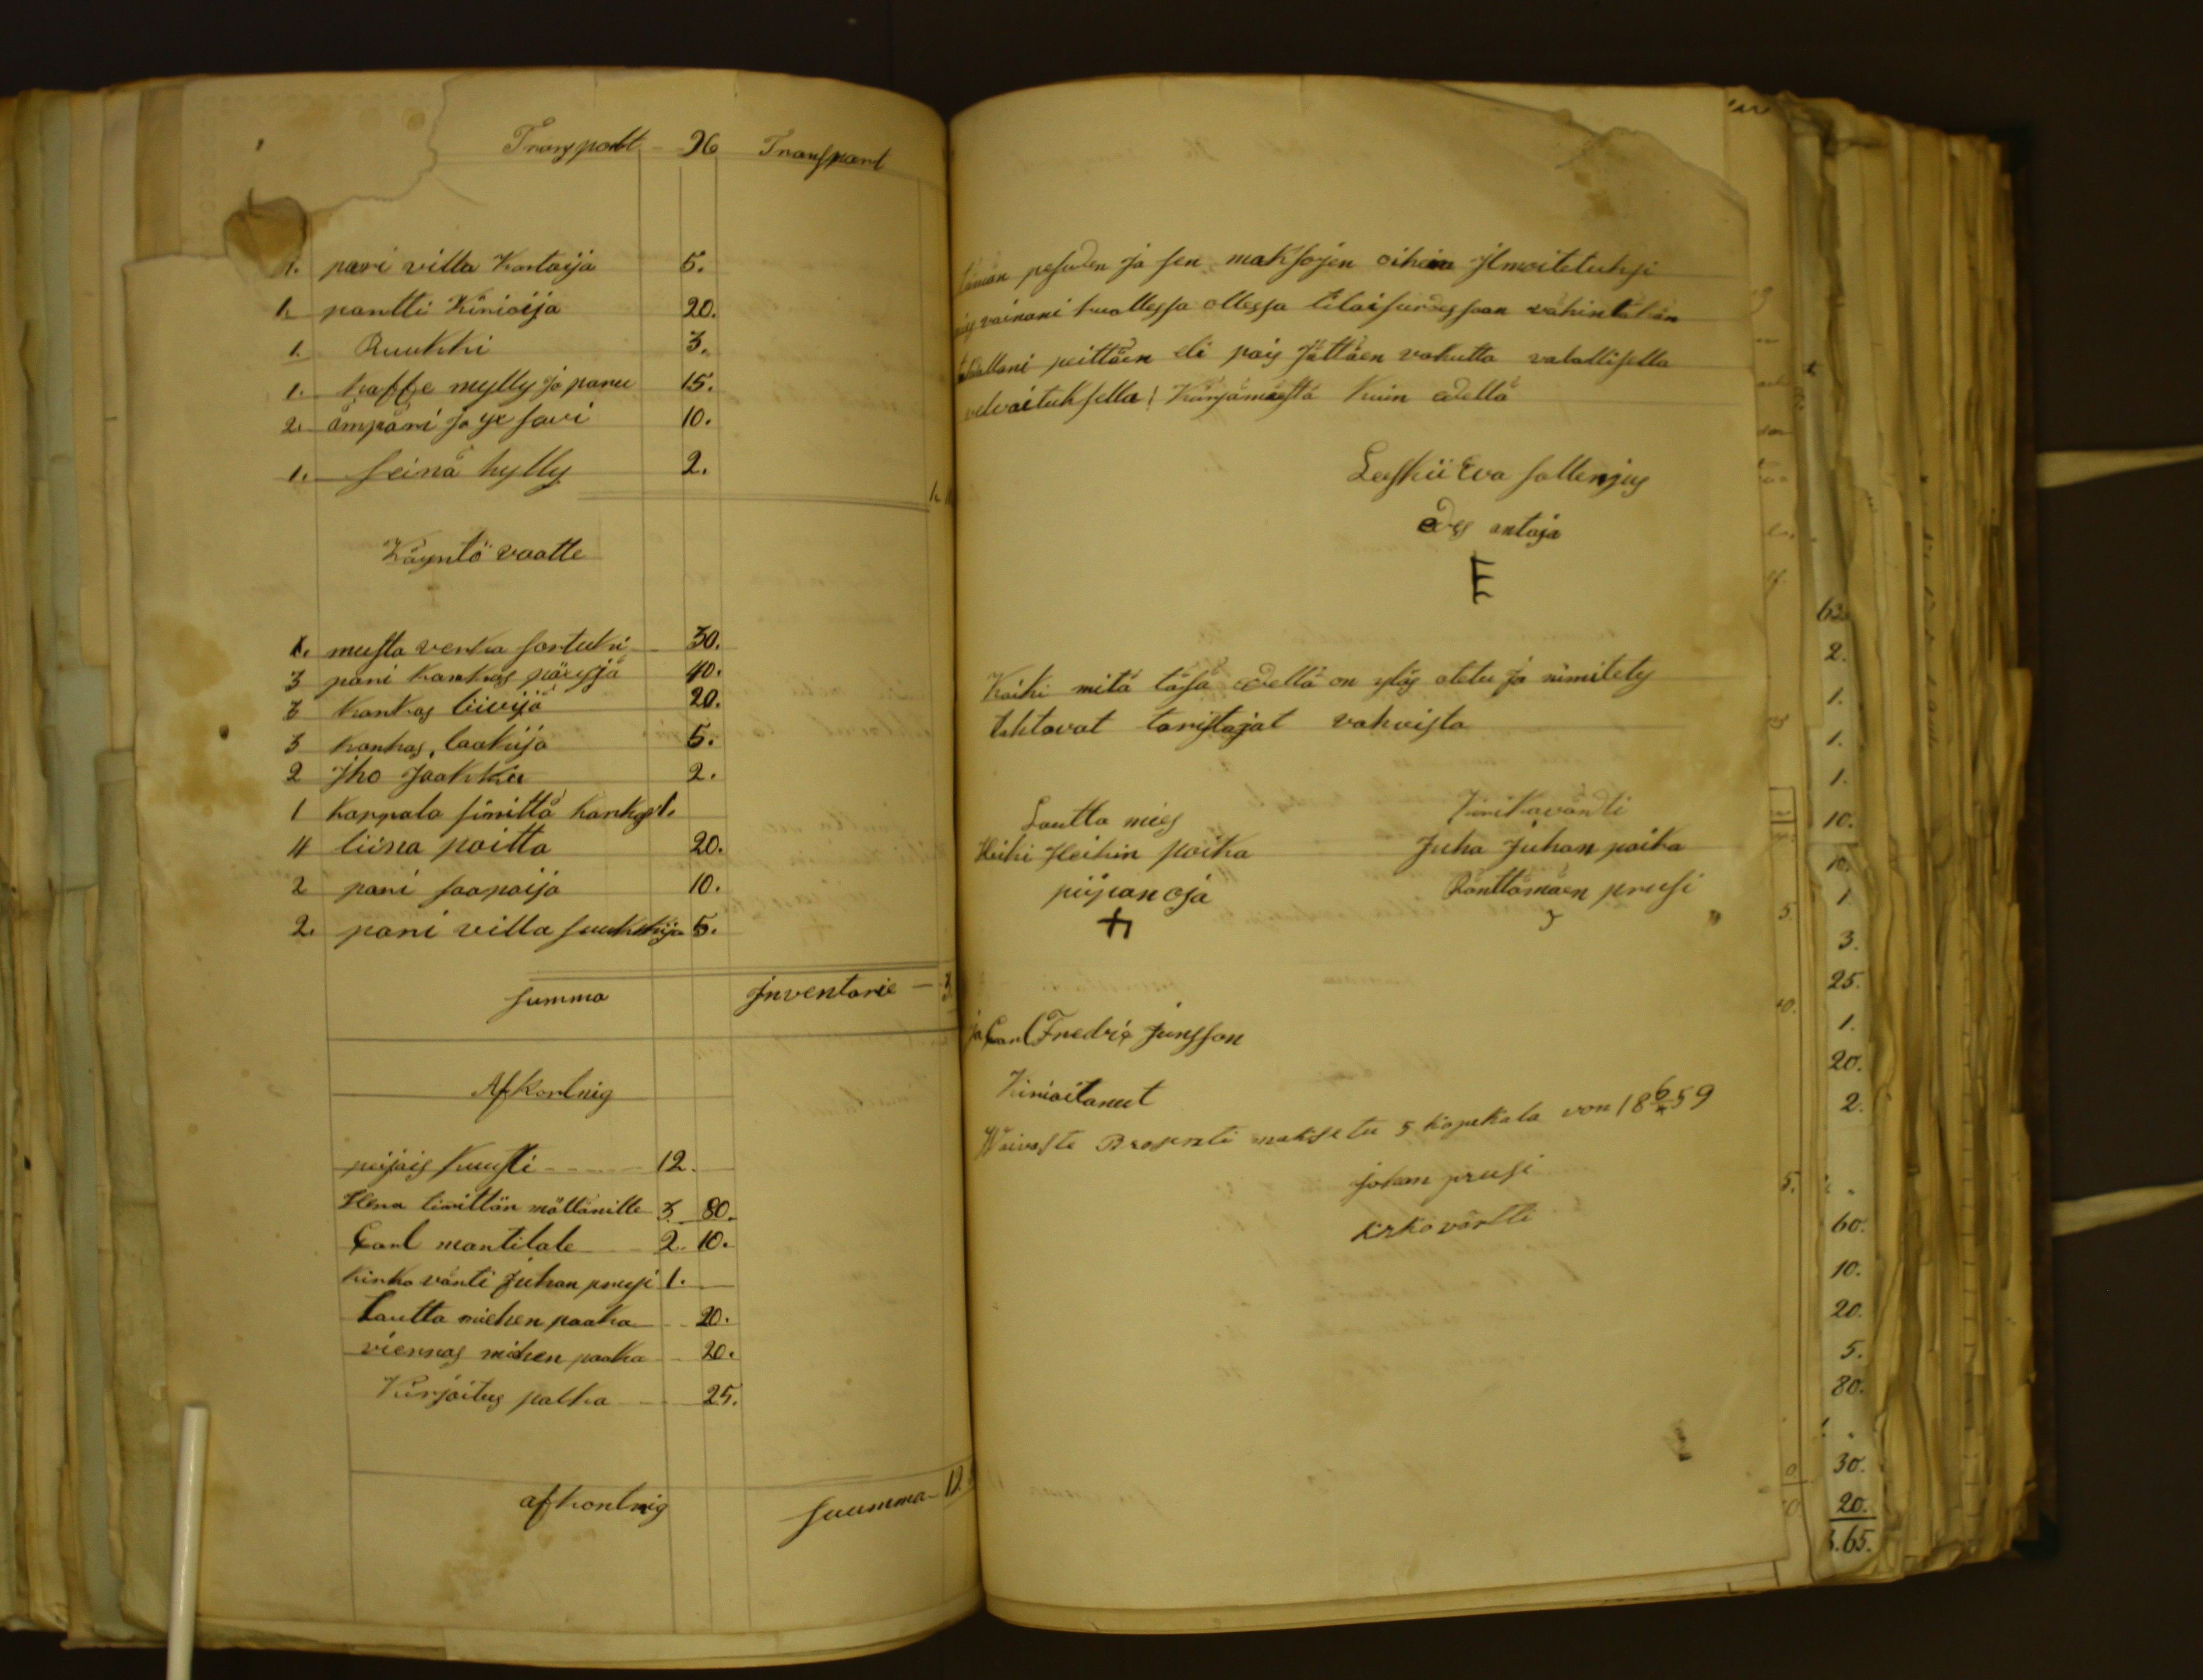 Transport - 96 Transport
1. pari villa Kartaija 5.
1. pantti Kirioija 20.
1. Ruukki 3.
1. kaffe mylly ja panu 15.
2. ämpäri ja yx savi 10.
1. seinä hylly 2.
Käyntö vaatte
1. musta verka sortuki 30.
3 pari kankas
40.
3 kankas liivijä 20.
3 kankas, laakkija 5.
2 Iho Jaakkia 2.
1 kappala sinittä kankast.
4 liina paitta 20.
2 pari saapaija 10.
2. pari villa suukkija 5.
summa Inventarie
Afkortnig
peijais kuusti 12.
Hena
3. 80.
Carl mantilale 2. 10.
kirko vänti Juhan prusi 1.
Lautta miehen paaka 20.
vierras miehen paaka 20.
Kirjoitus palka 25.
afkortnig suumma 12
tämän pesäden ja sen maksojen oikein Ilmoitetuksi
vainani kuollessa ollessa tilaisuudessaan vähintäkän
peittäen eli pois Jättäen vakutta valallisella
velvoituksella; Kärsämäestä kuin edellä
Leskii Eva sallenjus
edes antaja
E
Kaiki mitä täsä edellä on ylös otetu ja nimitety
tahtovat toristajat vahvista
Lautta mies Kirikovändi
Heiki Heikin poika Juha Juhan poika
piipanoja Ränttämäen prusi
ja Carl Fredrix Junsson
Kirioitanut
Waivaste Prosenti maksetu 5 kopekala von 18 6/4 59
johan prusi
krkovärtti
62
2.
1.
1.
1.
10.
10.
1.
3.
25.
1.
20.
2.
60.
10.
20.
5.
80.
30.
20.
65.